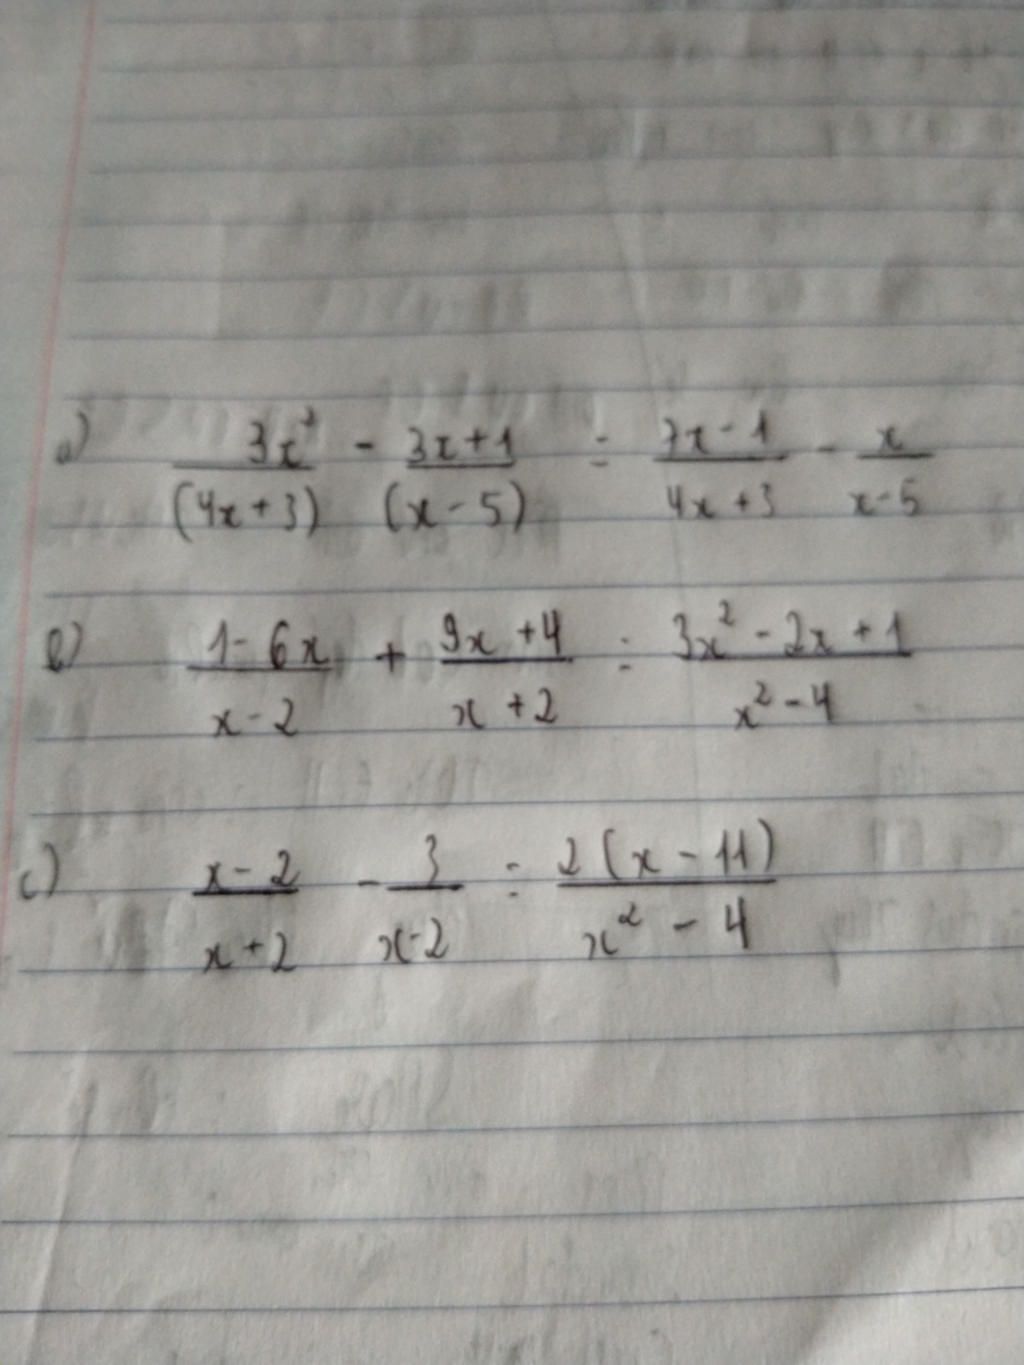 a) 3x² / (4x+3) - 3x+1 / (x-5) = 7x-1 / 4x+3 - x / x-5
b) 1-6x / x-2 + 9x+4 / x+2 = 3x²-2x+1 / x²-4
c) x-2 / x+2 - 3 / x-2 = 2(x-11) / x²-4